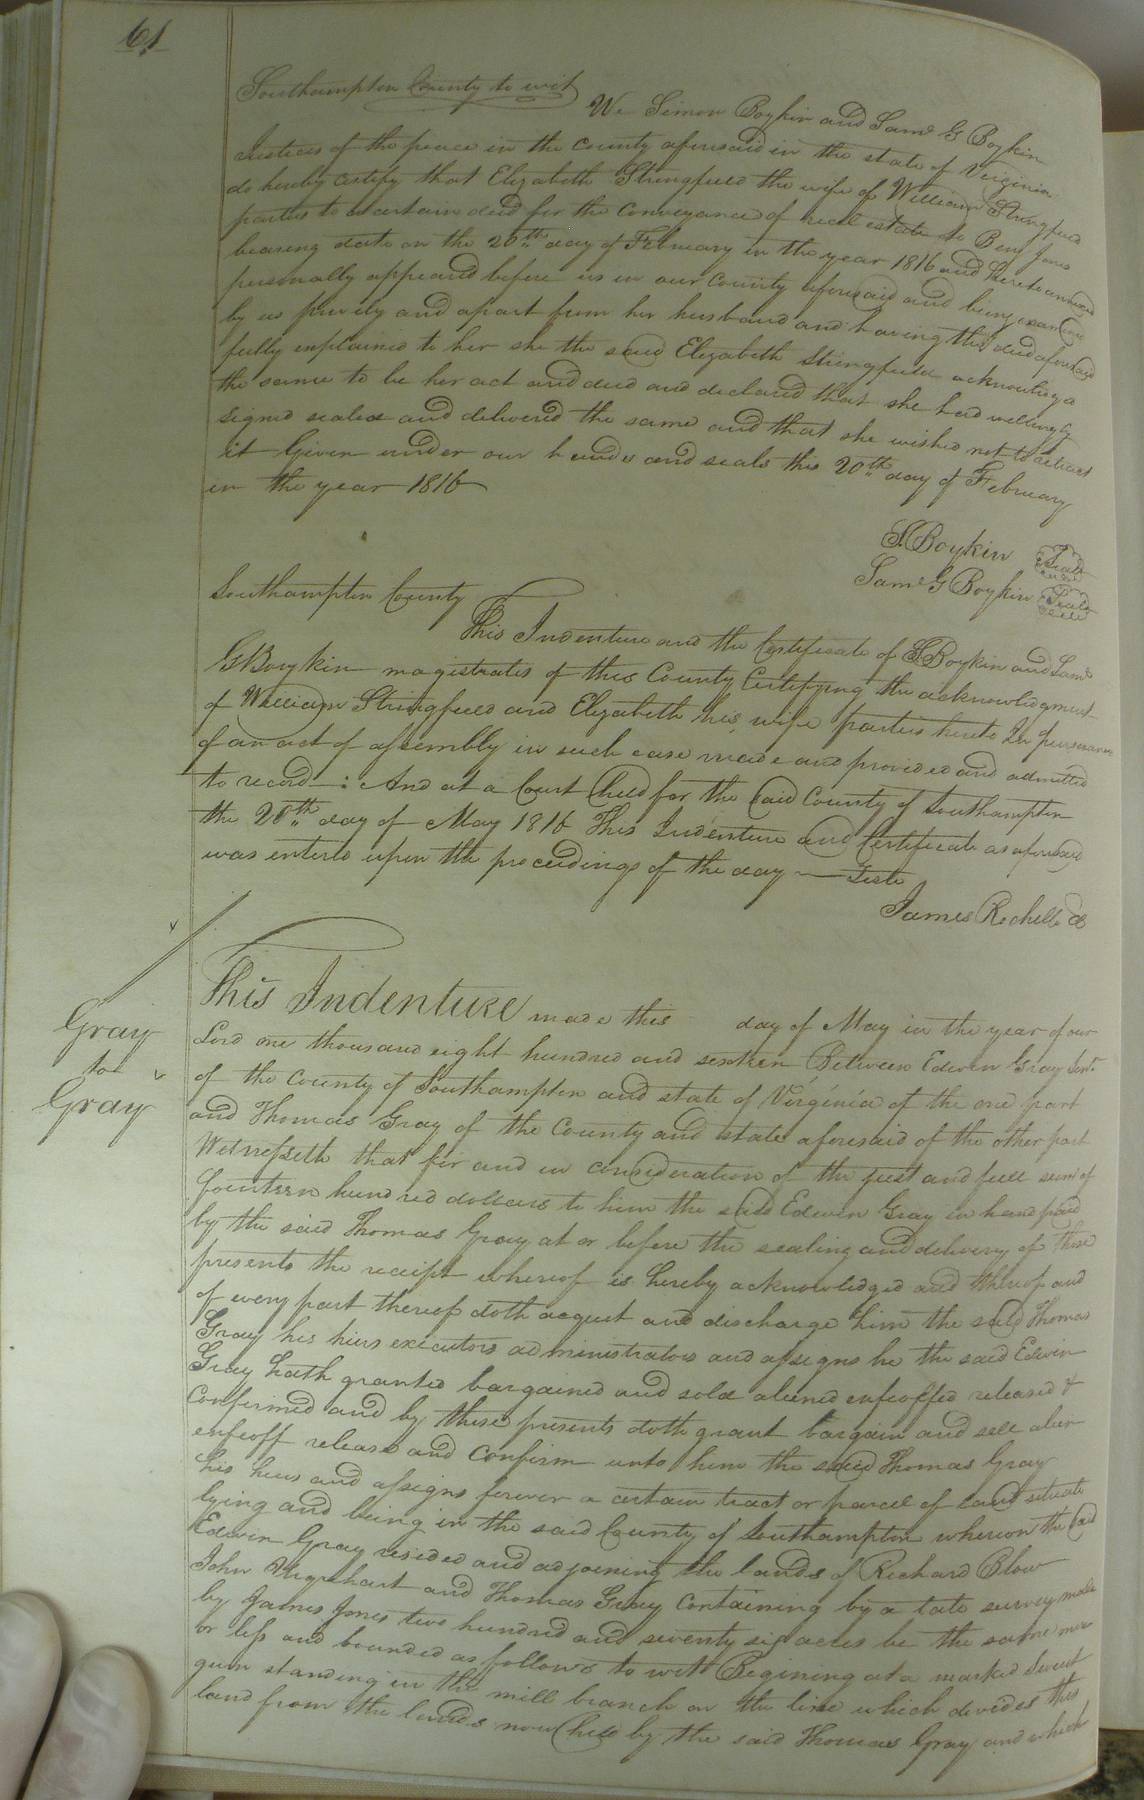 61
Southampton County to wit
We Simon Boykin and Saml G Boykin
Justices of the peace in the county aforesaid in the state of Virginia
do hereby certify that Elizabeth Stringfield the wife of William Stringfield
parties to a certain deed for the conveyance of real estate to Benj Jones
bearing date on the 20th day of February in the year 1816 and hereto annexed
personally appeared before us in our county aforesaid and being examined
by us privily and apart from her husband and having the deed aforesaid
fully explained to her she the said Elizabeth Stringfield acknowledged
the same to be her act and deed and declared that she had willingly
signed sealed and delivered the same and that she wished not to retract
it Given under our hands and seals this 20th day of February
in the year 1816
S. Boykin Seal
Saml G Boykin Seal
Southampton County
This Indenture and the Certificate of S Boykin and Saml
G Boykin magistrates of this County Certifying the acknowledgment
of William Stringfield and Elizabeth his wife parties hereto In pursuance
of an act of assembly in such case made and provided and admitted
to record : And at a Court held for the said County of Southampton
the 20th day of May 1816 This Indenture and Certificate as aforesaid
was entered upon the proceedings of the day — Teste
James Rochelle Cl
Gray
to
Gray
This Indenture made this day of May in the year of our
Lord one thousand eight hundred and sixteen Between Edwin Gray Senr
of the County of Southampton and state of Virginia of the one part
and Thomas Gray of the County and state aforesaid of the other part
Witnesseth that for and in consideration of the just and full sum of
fourteen hundred dollars to him the said Edwin Gray in hand paid
by the said Thomas Gray at or before the sealing and delivery of these
presents the receipt whereof is hereby acknowledged and thereof and
of every part thereof doth acquit and discharge him the said Thomas
Gray his heirs executors administrators and assigns he the said Edwin
Gray hath granted bargained and sold aliened enfeoffed released &
Confirmed and by these presents doth grant bargain and sell alien
enfeoff release and Confirm unto him the said Thomas Gray
his heirs and assigns forever a certain tract or parcel of land situate
lying and being in the said County of Southampton whereon the said
Edwin Gray resided and adjoining the lands of Richard Blow
John Urquhart and Thomas Gray Containing by a late survey made
by James Jones two hundred and seventy six acres be the same more
or less and bounded as follows to wit Begining at a marked Sweet
gum standing in the mill branch on the line which devides this
land from the lands now held by the said Thomas Gray and which